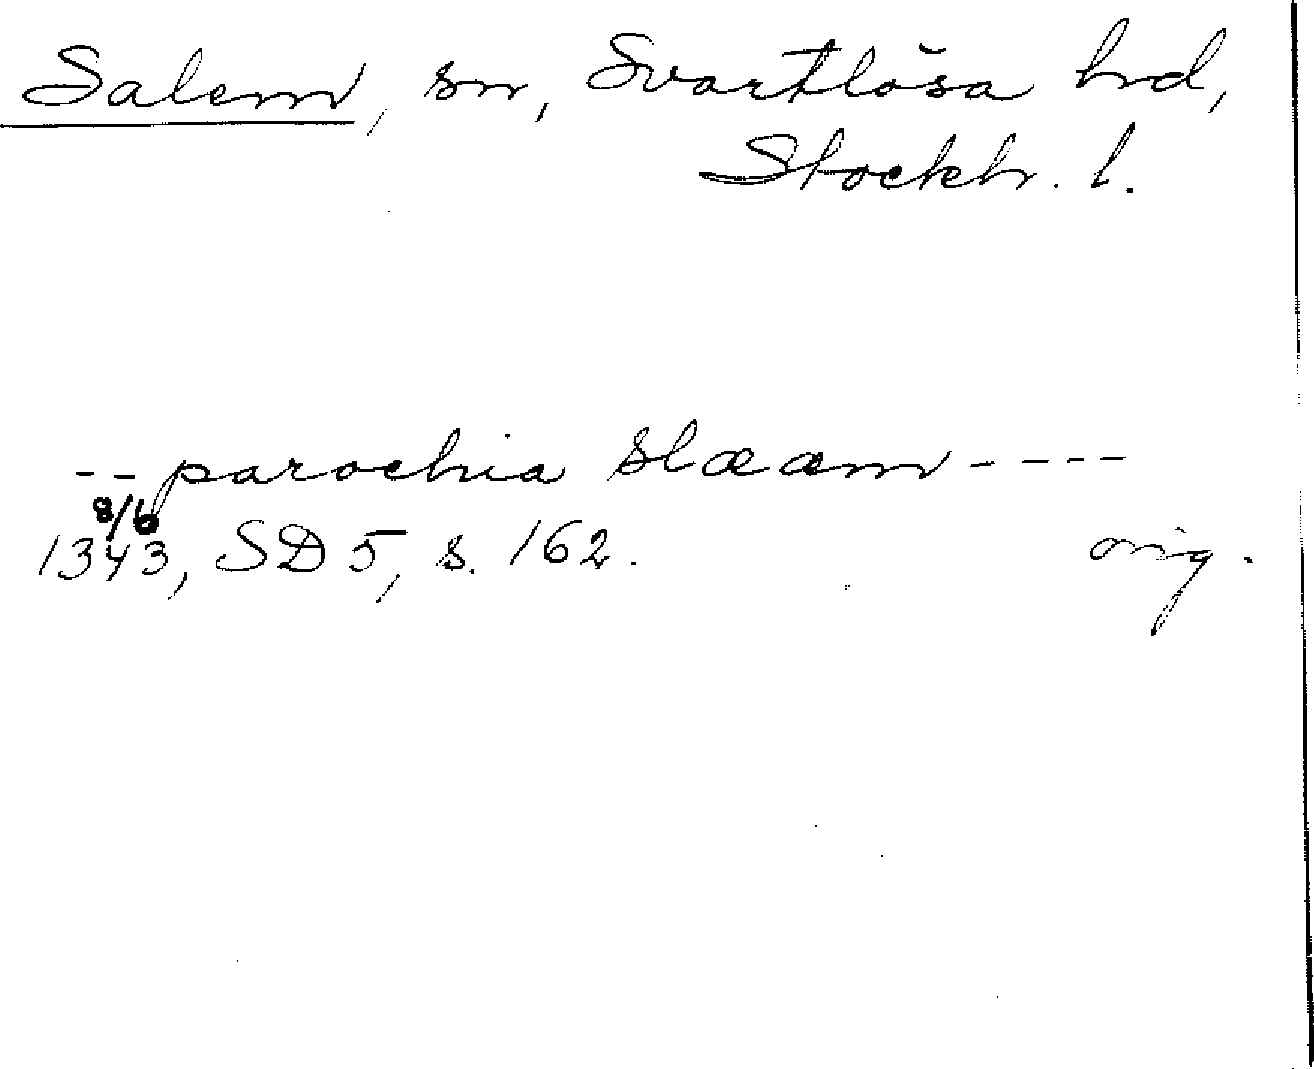 Salem, sn, Svartlösa hd,
Stockh. l.
--parochia Slææm----
8/6
1343, SD 5, s. 162. orig.